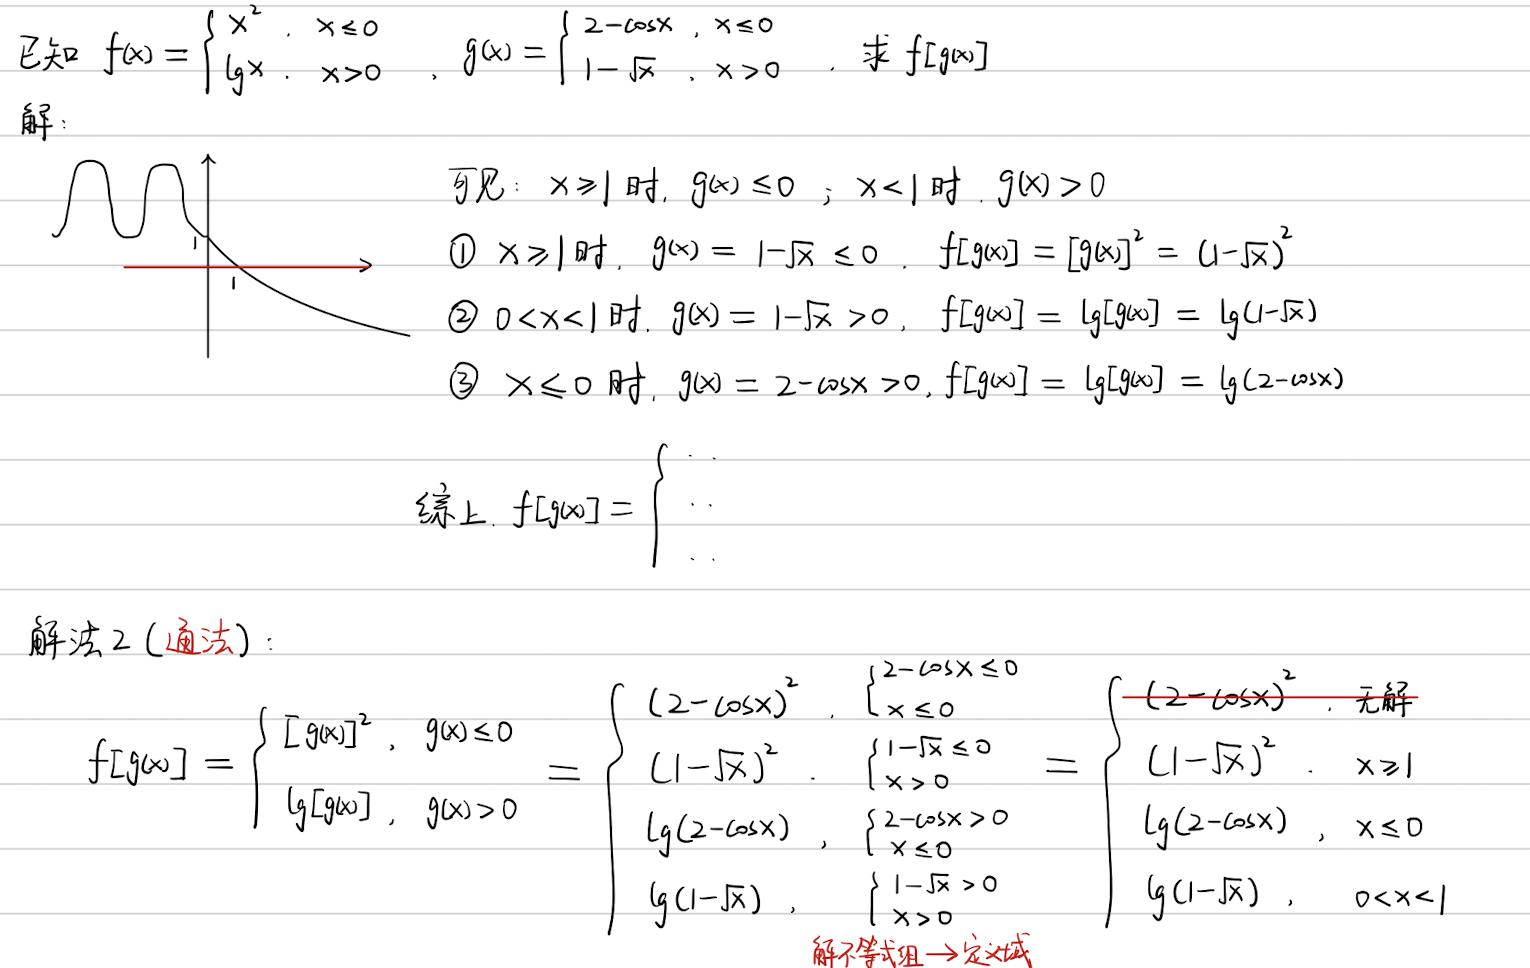 已知 f(x) = { x² , x≤0 ; lgx , x>0 , g(x) = { 2-cosx , x≤0 ; 1-√x , x>0 . 求 f[g(x)]
解:
1
1
可见: x≥1 时, g(x) ≤0 ; x<1 时 , g(x)>0
① x≥1 时, g(x) = 1-√x ≤0 , f[g(x)] = [g(x)]² = (1-√x)²
② 0<x<1 时, g(x) = 1-√x >0, f[g(x)] = lg[g(x)] = lg(1-√x)
③ x≤0 时, g(x) = 2-cosx >0, f[g(x)] = lg[g(x)] = lg(2-cosx)
综上, f[g(x)] = { ·· ·· ··
解法2 (通法):
f[g(x)] = { [g(x)]² , g(x)≤0 ; lg[g(x)] , g(x)>0
= { (2-cosx)² , { 2-cosx≤0 x≤0
(1-√x)² , { 1-√x≤0 x>0
lg(2-cosx) , { 2-cosx>0 x≤0
lg(1-√x) , { 1-√x>0 x>0
= { (2-cosx)² , 无解
(1-√x)² , x≥1
lg(2-cosx) , x≤0
lg(1-√x) , 0<x<1
解不等式组→定义域